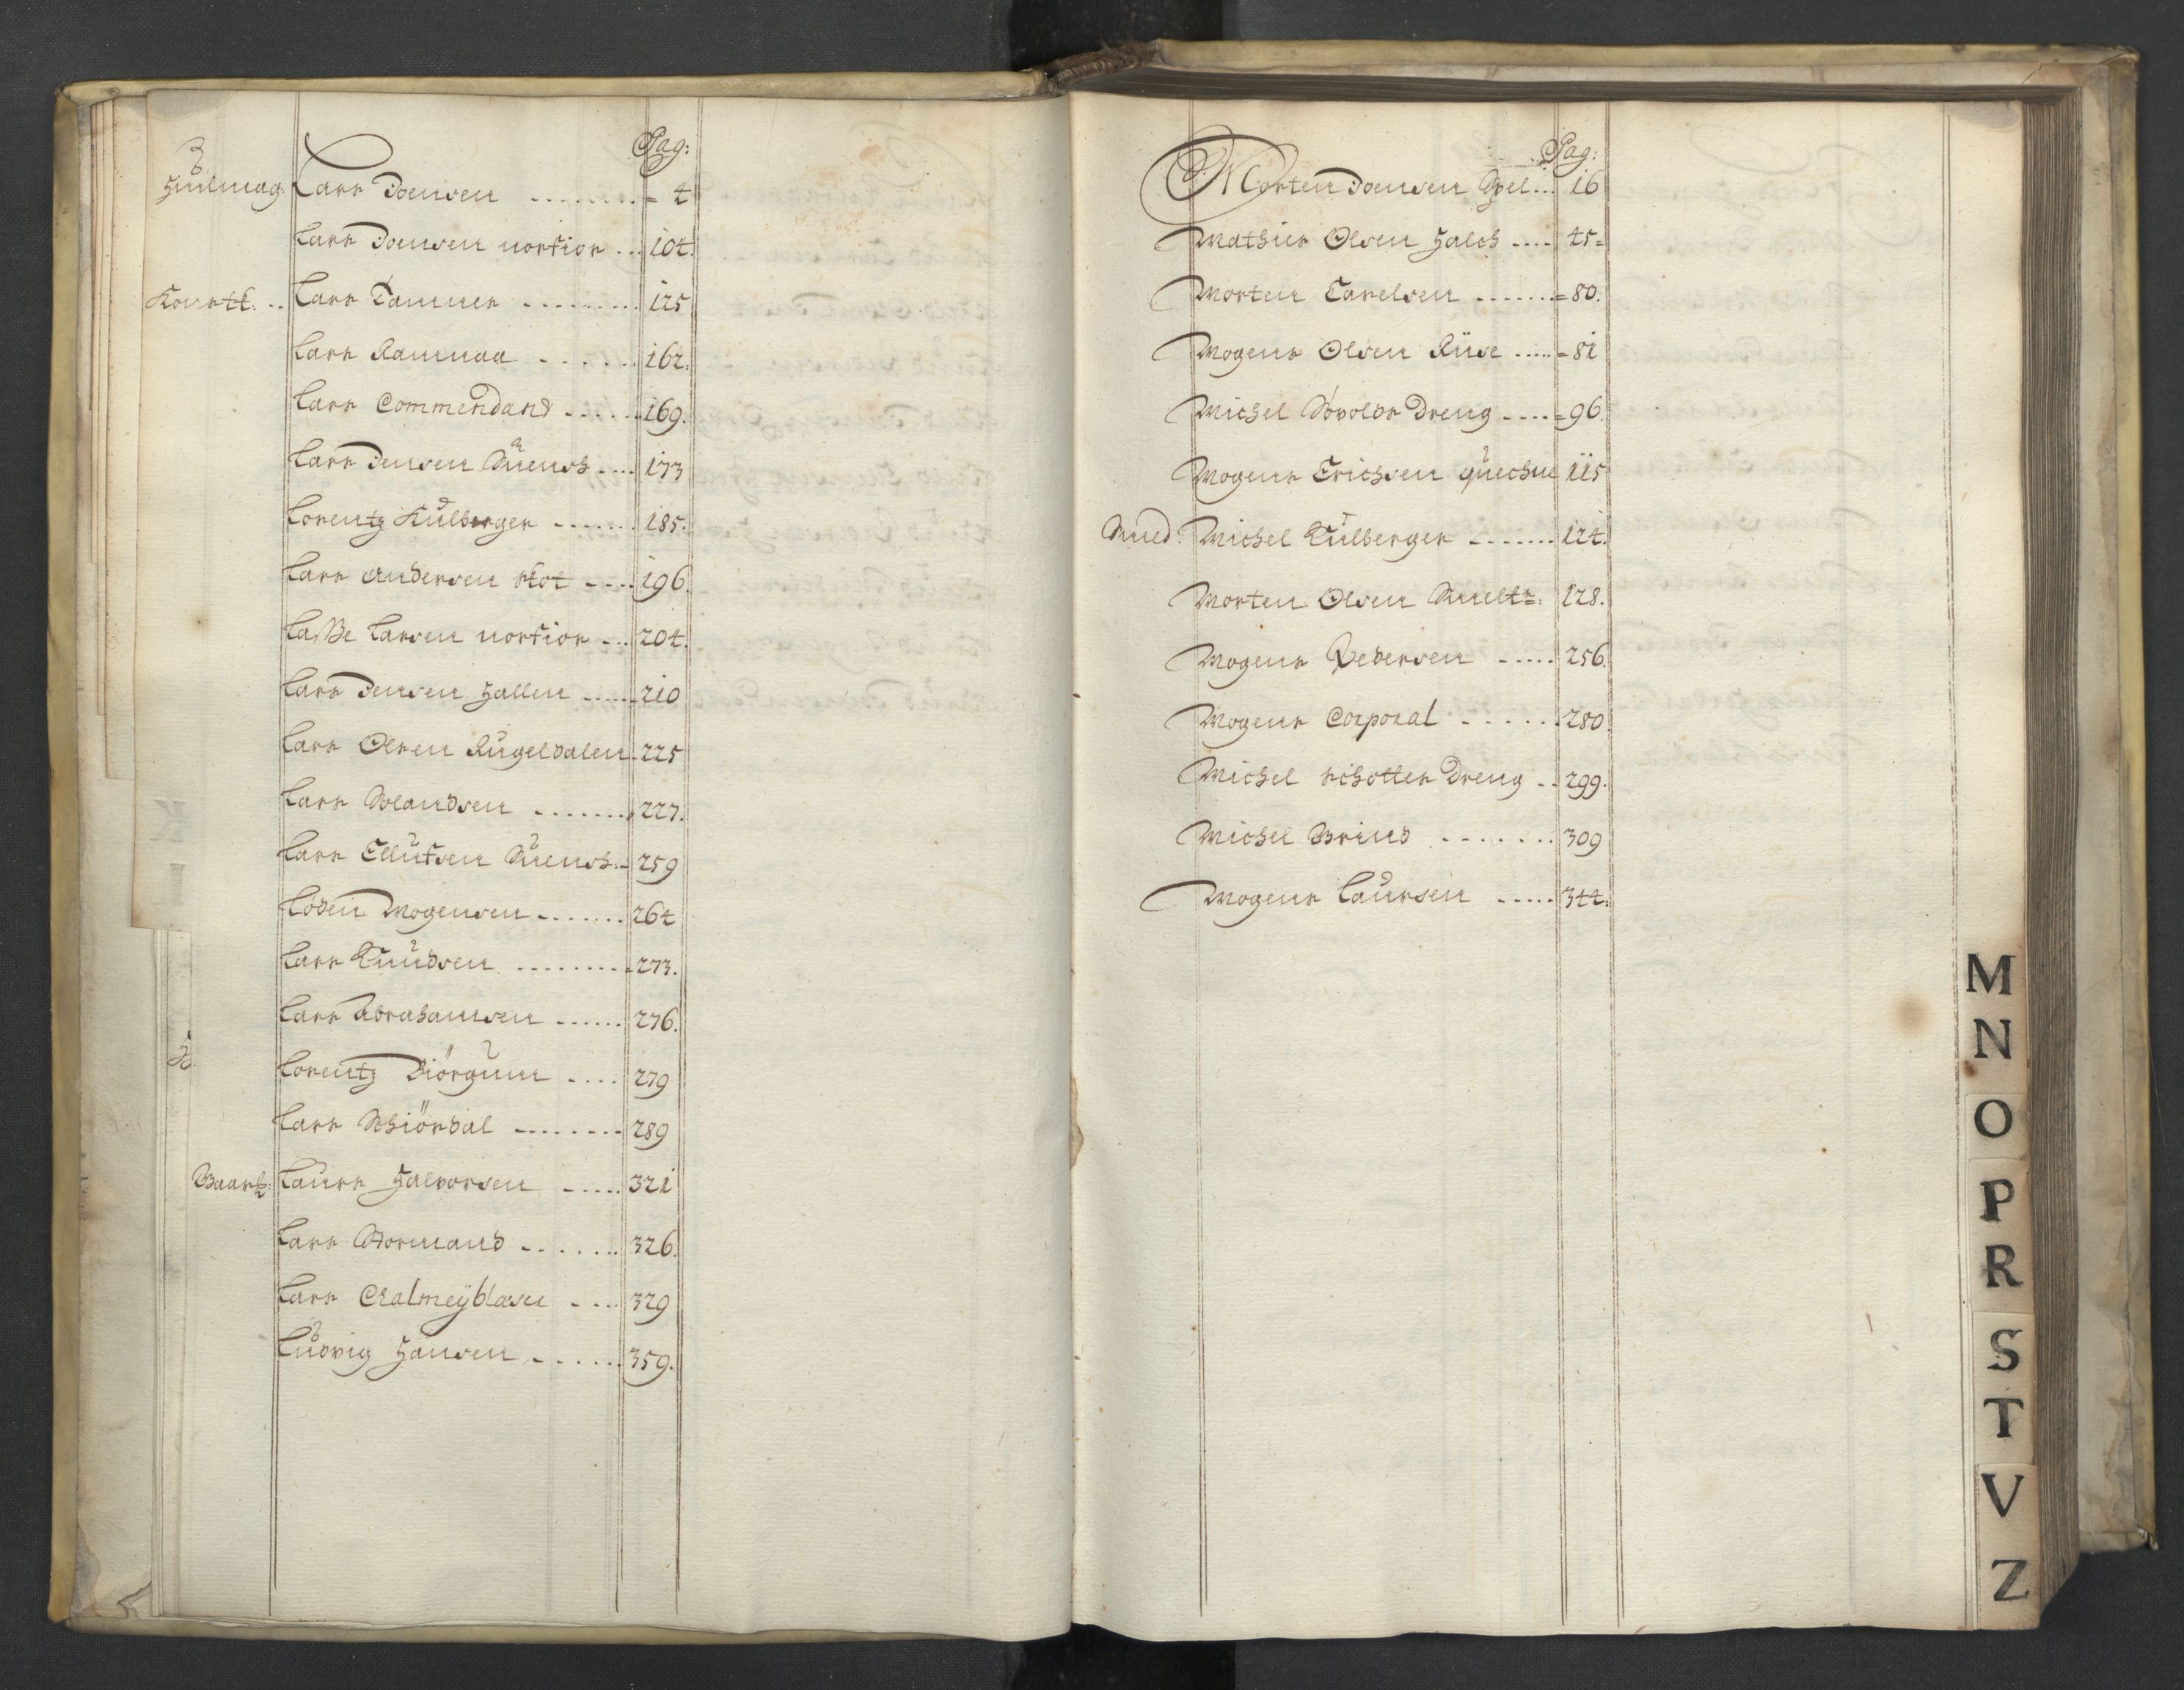 Pag:
Hiulmag: Lars Joensen ........= 4
Lars Joensen norfior ... 104.
Lars Tammes ......... 125
Lars Ramnaa ...... 162.
Lars Commendand ...... 169.
Lars Jensen Suensk .... 173
Lorentz Kulberger ....... 185.
Lars Andersen Skot .... 196.
Lasse Larsen norfior ... 204.
Lars Jensen Hallen ...... 210
Lars Olsen Rugeldalen. 225
Lars Solandsen ........ 227.
Lars Ellufsen Suensk.- 259
Loden Mogensen ....... 264
Lars Knudsen ......... 273.
Lars Abrahamsen ...... 276.
Lorentz Biörgum .... 279
Lars Schiördal ........ 289
Laurs Halvorsen ..... 321
Lars Stormand ....... 326.
Lars Chalmeÿblæser .... 329
Ludvig Hansen ...... 359.
Pag:
Morten Joensen Opel... 16
Mathies Olsen Falch .... 45=
Morten Carelsen .......= 80.
Mogens Olsen Ruse .....= 81
Michel Povolds Dreng ....= 96.
Mogens Erichsen Quechne 115
Smed: Michel Kulberger ....... 124.
Morten Olsen Smeltr: 128.
Mogens Pedersen ..... 256.
Mogens Corporal ...... 280.
Michel schotter Dreng .. 299.
Michel Brind ....... 309
Mogens Laursen ..... 344.
M
N
O
P
R
S
T
V
Z